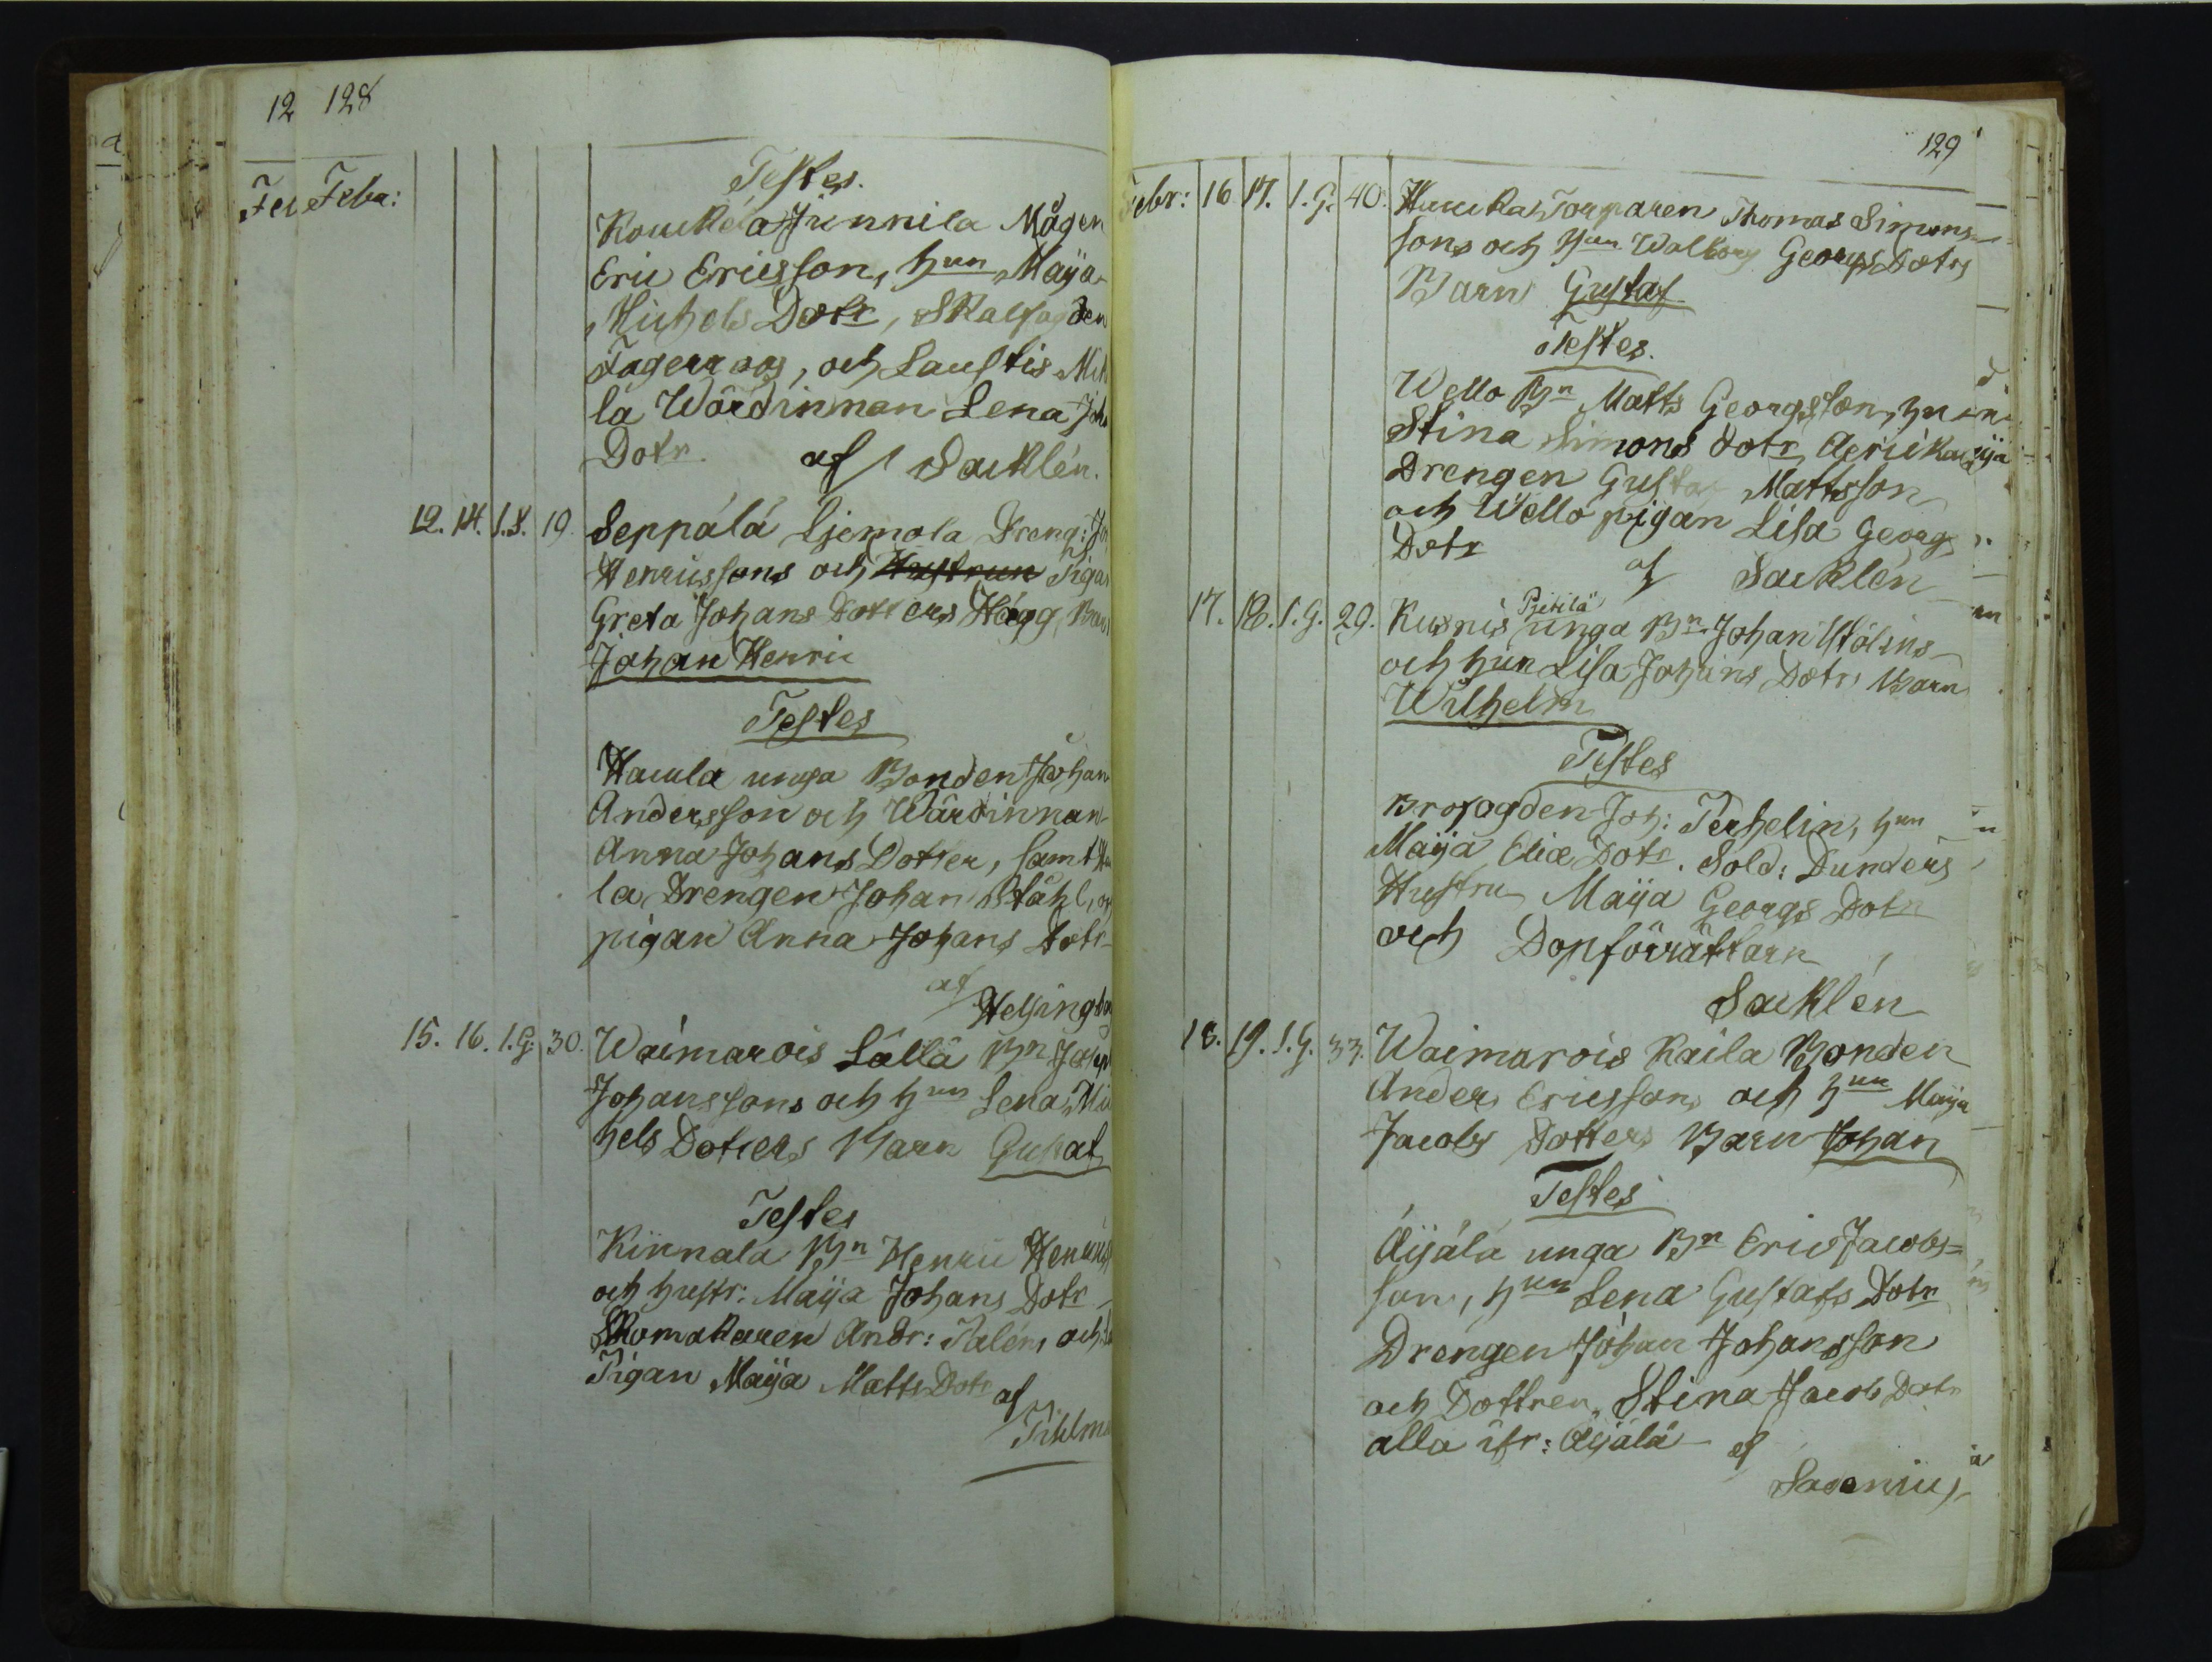 12 128
Febr:
Testes.
Kouckela Junnila Mågen
Eric Ericsson, hun Maija
Michels Dotr, Skalfogden
Fagerroos, och Laustis
la Wärdinnan Lena Joh
Dotr af Sacklén.
12. 14. 1. 19. Seppälä Ljemola Dreng:
Henricssons och Hustrun Pigan
Greta Johans Dotters Hägg, Barn
Johan Henric
Testes
Haula unga Bonden Johan
Andersson och Wärdinnan
Anna Johans Dotter, samt
la Drengen Johan Ståhl, och
pigan Anna Johans Dotr
af
Helsingb
15. 16. 1.G. 30. Waimarois Lällä Bn Joseph
Johanssons och hun Lena Mic
hels Dotters Barn Gustaf
Testes
Kinnala Bn Henric Henricss
och hustr: Maija Johans Dotr
Skomakaren Andr: Palén, och
Pigan Maija Matts Dotr af
129
Febr: 16 17. 1.G. 40. Torparen Thomas Simons
sons och hun Walborg Georgs Dotrs
Barn Gustaf
Testes.
Wello Bn Matts Georgsson, hun
Stina Simons Dotr
Drengen Gustaf Mattsson
och Wello pigan Lisa Georg
Dotr af Sacklén
Pjetilä
17. 18. 1.G. 29. Kusnis unga Bn Johan
och hun Lisa Johans Dotrs Barn
Wilhelm
Testes
Brofogden Joh: Perhelin, hun
Maija Eliæ Dotr. Sold: Dunders
Hustru Maija Georgs Dotr
och Dopförrättarn
Sacklén
18. 19. 1.G. 33. Waimarois Kaila Bonden
Anders Ericssons och hun Maija
Jacobs Dotters Barn Johan
Testes
Äijälä unga Bn Eric Jacobs=
son, hun Lena Gustafs Dotr
Drengen Johan Johansson
och Dottren Stina Jacobs Dotr
alla ifr: Äijälä af
Saxenius